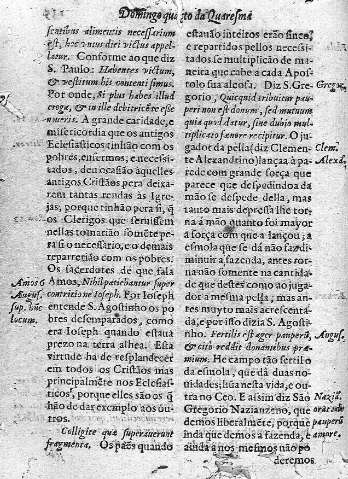 Domingo quarto da Quaresma
sentibus alimentis necessarium
est, hoc nunc diei victus appel-
latur. Conforme ao que diz
S. Paulo: Habentes victum,
& vestitum his contenti simus.
Por onde, Si plus habes illud
eroga, & in
A grande caridade, e
misericordia que os antigos
Ecclesiasticos tinhão com os
pobres, enfermos, e necessi-
tados, deu ocasião àquelles
antigos Cristãos pera deixa-
rem tantas rendas às Igre-
jas, porque tinhão pera si, q̃
os Clerigos que servissem
nellas tomarião somẽte pe-
ra si o necessario, e o demais
repartirião com os pobres.
Os sacerdotes de que fala
Amos, Nihil patiebantur super
contritione Ioseph. Por Ioseph
entende S. Agostinho os po-
bres desemparados, como
era Ioseph quando estava
prezo na terra alhea. Esta
virtude ha de resplandecer
em todos os Cristãos mas
principalmẽte nos Eclesias-
ticos, porque elles são os q̃
hão de dar exemplo aos ou-
tros.
Colligite quæ superaverunt
fragmenta. Os pães quando
Amos 6
August.
sup. hũc
locum.
estavão inteiros erão sinco,
e repartidos pellos necessi-
tados se multiplicão de ma-
neira que cabe a cada Apos-
tolo sua alcofa. Diz S. Gre-
gorio, Quicquid tribuitur pau-
peri non est donum, sed mutuum
quia quod datur, sine dubio mul-
tiplicato fœnore recipitur. O ju-
gador da pella (diz Clemen-
te Alexandrino) lança à pa-
rede com grande força que
parece que despedindoa da
mão se despede della, mas
tanto mais depressa lhe tor-
na à mão quanto foi mayor
a força com que a lançou; a
esmola que se dá não faz di-
minuir a fazenda, antes tor-
na não somente na cantida-
de que destes como ao juga-
dor a mesma pella, mas an-
tes muyto mais acrescenta-
da, e por isso dizia S. Agosti-
nho. Fertilis est ager pauperũ,
& cito reddit donantibus præ-
mium. He campo tão fertil o
da esmola, que dá duas no-
vidades; hũa nesta vida, e ou-
tra no Ceo. E assim diz São
Gregorio Nazianzeno, que
demos liberalmẽte, porque
inda que demos a fazenda, e
ainda a nos mesmos não po
deremos
Clem.
Alexã.
August.
Naziã.
pauperũ
amore.